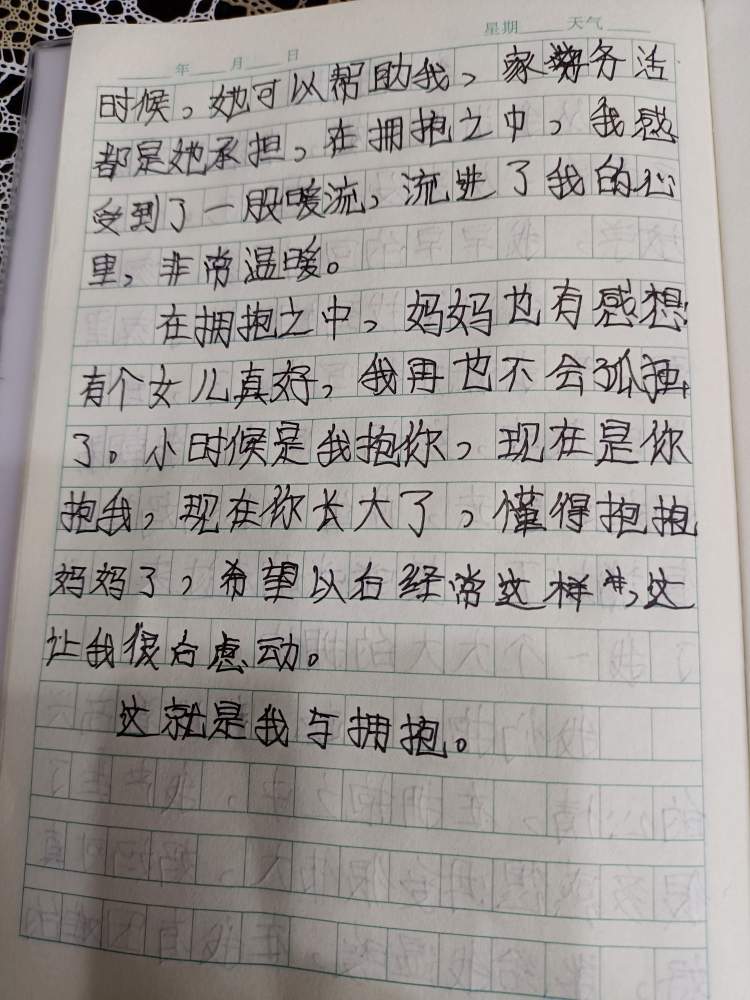 年 月 日 星期 天气
时候，她可以帮助我，家务活
都是她承担，在拥抱之中，我感
受到了一股暖流，流进了我的心
里，非常温暖。
在拥抱之中，妈妈也有感想：
有个女儿真好，我再也不会孤独
了。小时候是我抱你，现在是你
抱我，现在你长大了，懂得抱抱
妈妈了，希望以后经常这样，这
让我很感动。
这就是我与拥抱。